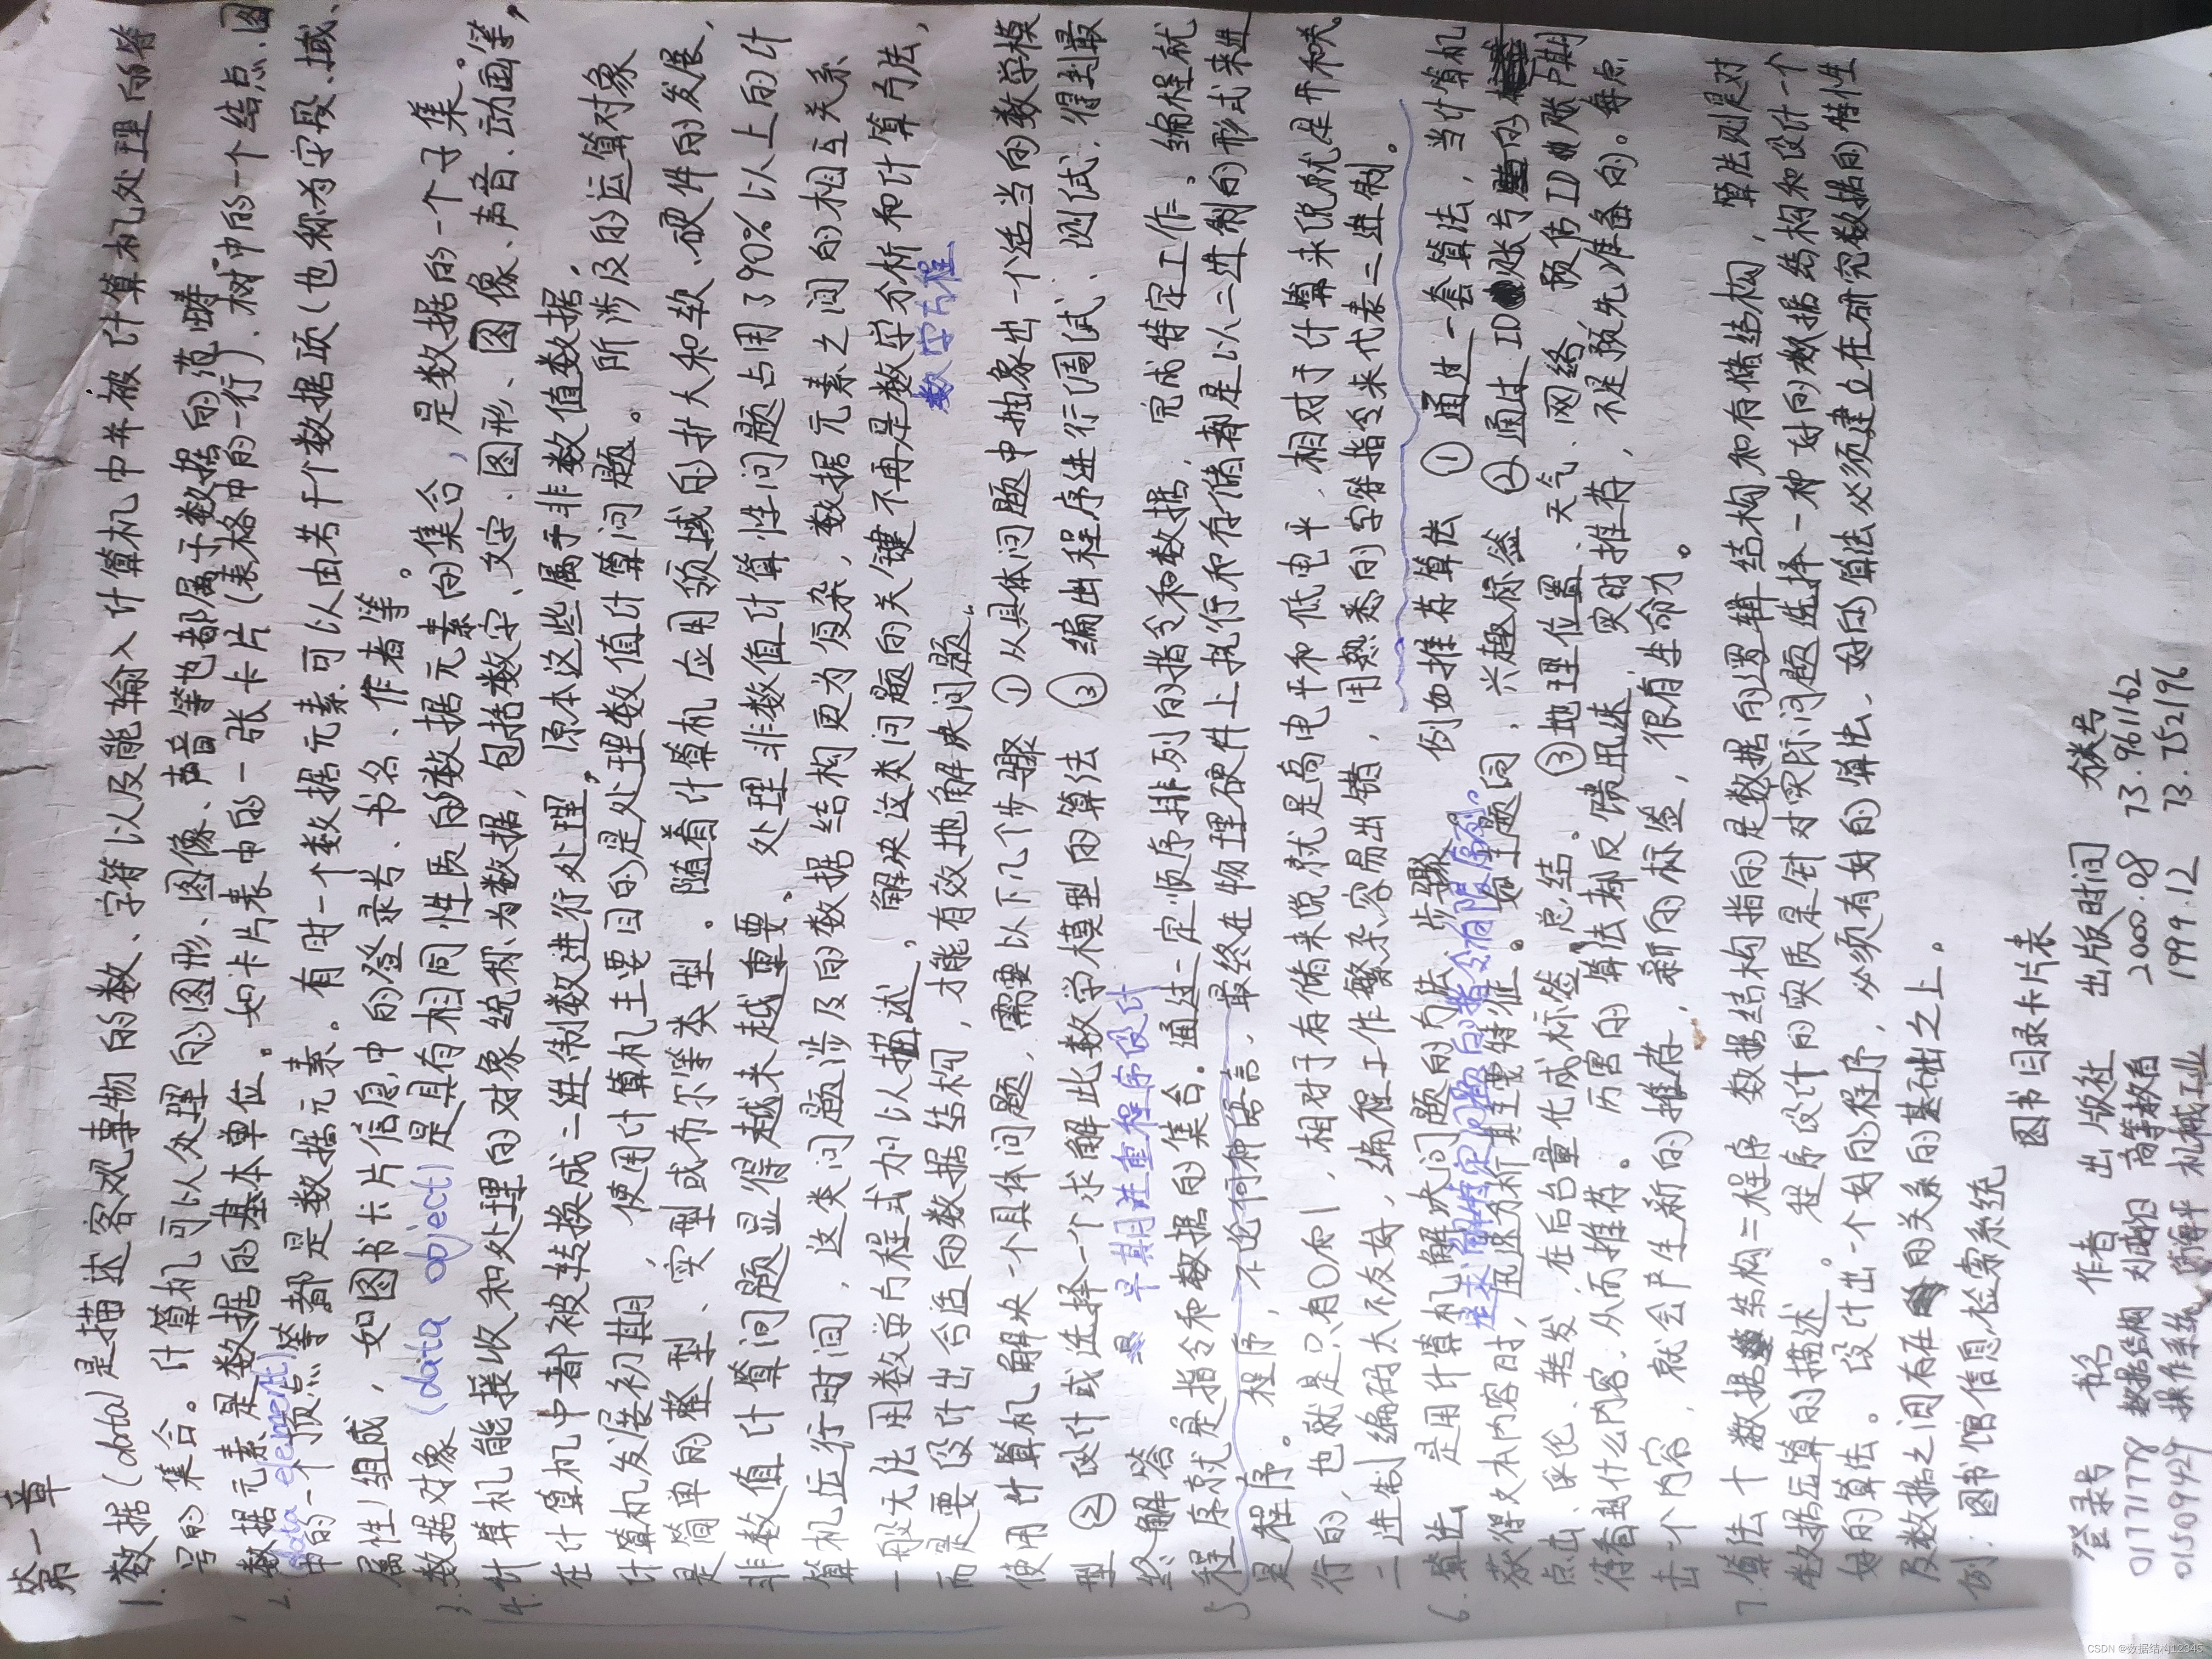 第一章
1. 数据(data)是描述客观事物的数、字符以及能输入计算机中并被计算机处理的符
号的集合。计算机可以处理的图形、图像、声音等也都属于数据的范畴
2. 数据元素是数据的基本单位。如卡片表中的一张卡片(表格中的一行)、树中的一个结点、图
(data element)
中的一个顶点等都是数据元素。有时一个数据元素可以由若干个数据项(也称为字段、域、
属性)组成,如图书卡片信息中的登录号、书名、作者等。
3. 数据对象(data object)是具有相同性质的数据元素的集合,是数据的一个子集。
4. 计算机能接收和处理的对象统称为数据,包括数字、文字、图形、图像、声音、动画等,
在计算机中都被转换成二进制数进行处理,原本这些属于非数值数据,
计算机发展初期,使用计算机主要目的是处理数值计算问题。所涉及的运算对象
是简单的整型、实型或布尔等类型。随着计算机应用领域的扩大和软、硬件的发展,
非数值计算问题显得越来越重要。处理非数值计算性问题占用了90%以上的计
算机运行时间,这类问题涉及的数据结构更为复杂,数据元素之间的相互关系
一般无法用数学方程式加以描述。解决这类问题的关键不再是数字分析和计算方法,
数字方程
而是要设计出合适的数据结构,才能有效地解决问题。
使用计算机解决一个具体问题,需要以下几个步骤 ①从具体问题中抽象出一个适当的数学模
型 ②设计或选择一个求解此数学模型的算法 ③编出程序进行调试、测试,得到最
终解答 早期注重程序设计
5 程序就是指令和数据的集合。通过一定顺序排列的指令和数据,完成特定工作。编程就
是程序。程序,不论何种语言,最终在物理硬件上执行和存储都是以二进制的形式来进
行的,也就是只有0和1,相对于存储来说就是高电平和低电平,相对于计算来说就是开和关。
二进制编码太不友好,编程工作繁杂容易出错,用熟悉的字符指令来代表二进制。
6. 算法 是用计算机解决问题的方法步骤 例如推荐算法 ①通过一套算法,当计算机
是求解特定问题的指令有限序列。
获得文本内容时,迅速分析其主要特征。如主题词,兴趣标签 ②通过ID账号的
点击、评论、转发,在后台量化成标签,总结。③地理位置、天气、网络、预估ID账户期
待看到什么内容,从而推荐。厉害的算法却反馈迅速,实时推荐,不是预先准备的。每点
击一个内容,就会产生新的推荐,新的标签,很有生命力。
7. 算法+数据结构=程序 数据结构指的是数据的逻辑结构和存储结构,算法则是对
数据运算的描述。程序设计的实质是针对实际问题选择一种好的数据结构和设计一个
好的算法。设计出一个好的程序,必须有好的算法、好的算法必须建立在研究数据的特性
及数据之间存在的关系的基础之上。
例:图书馆信息检索系统
图书目录卡片表
登录号 书名 作者 出版社 出版时间 分类号
01771778 数据结构 刘晓阳 高等教育 2000.08 73.961162
01509429 操作系统 机械工业 1999.12 73.752196
CSDN @数据结构12345